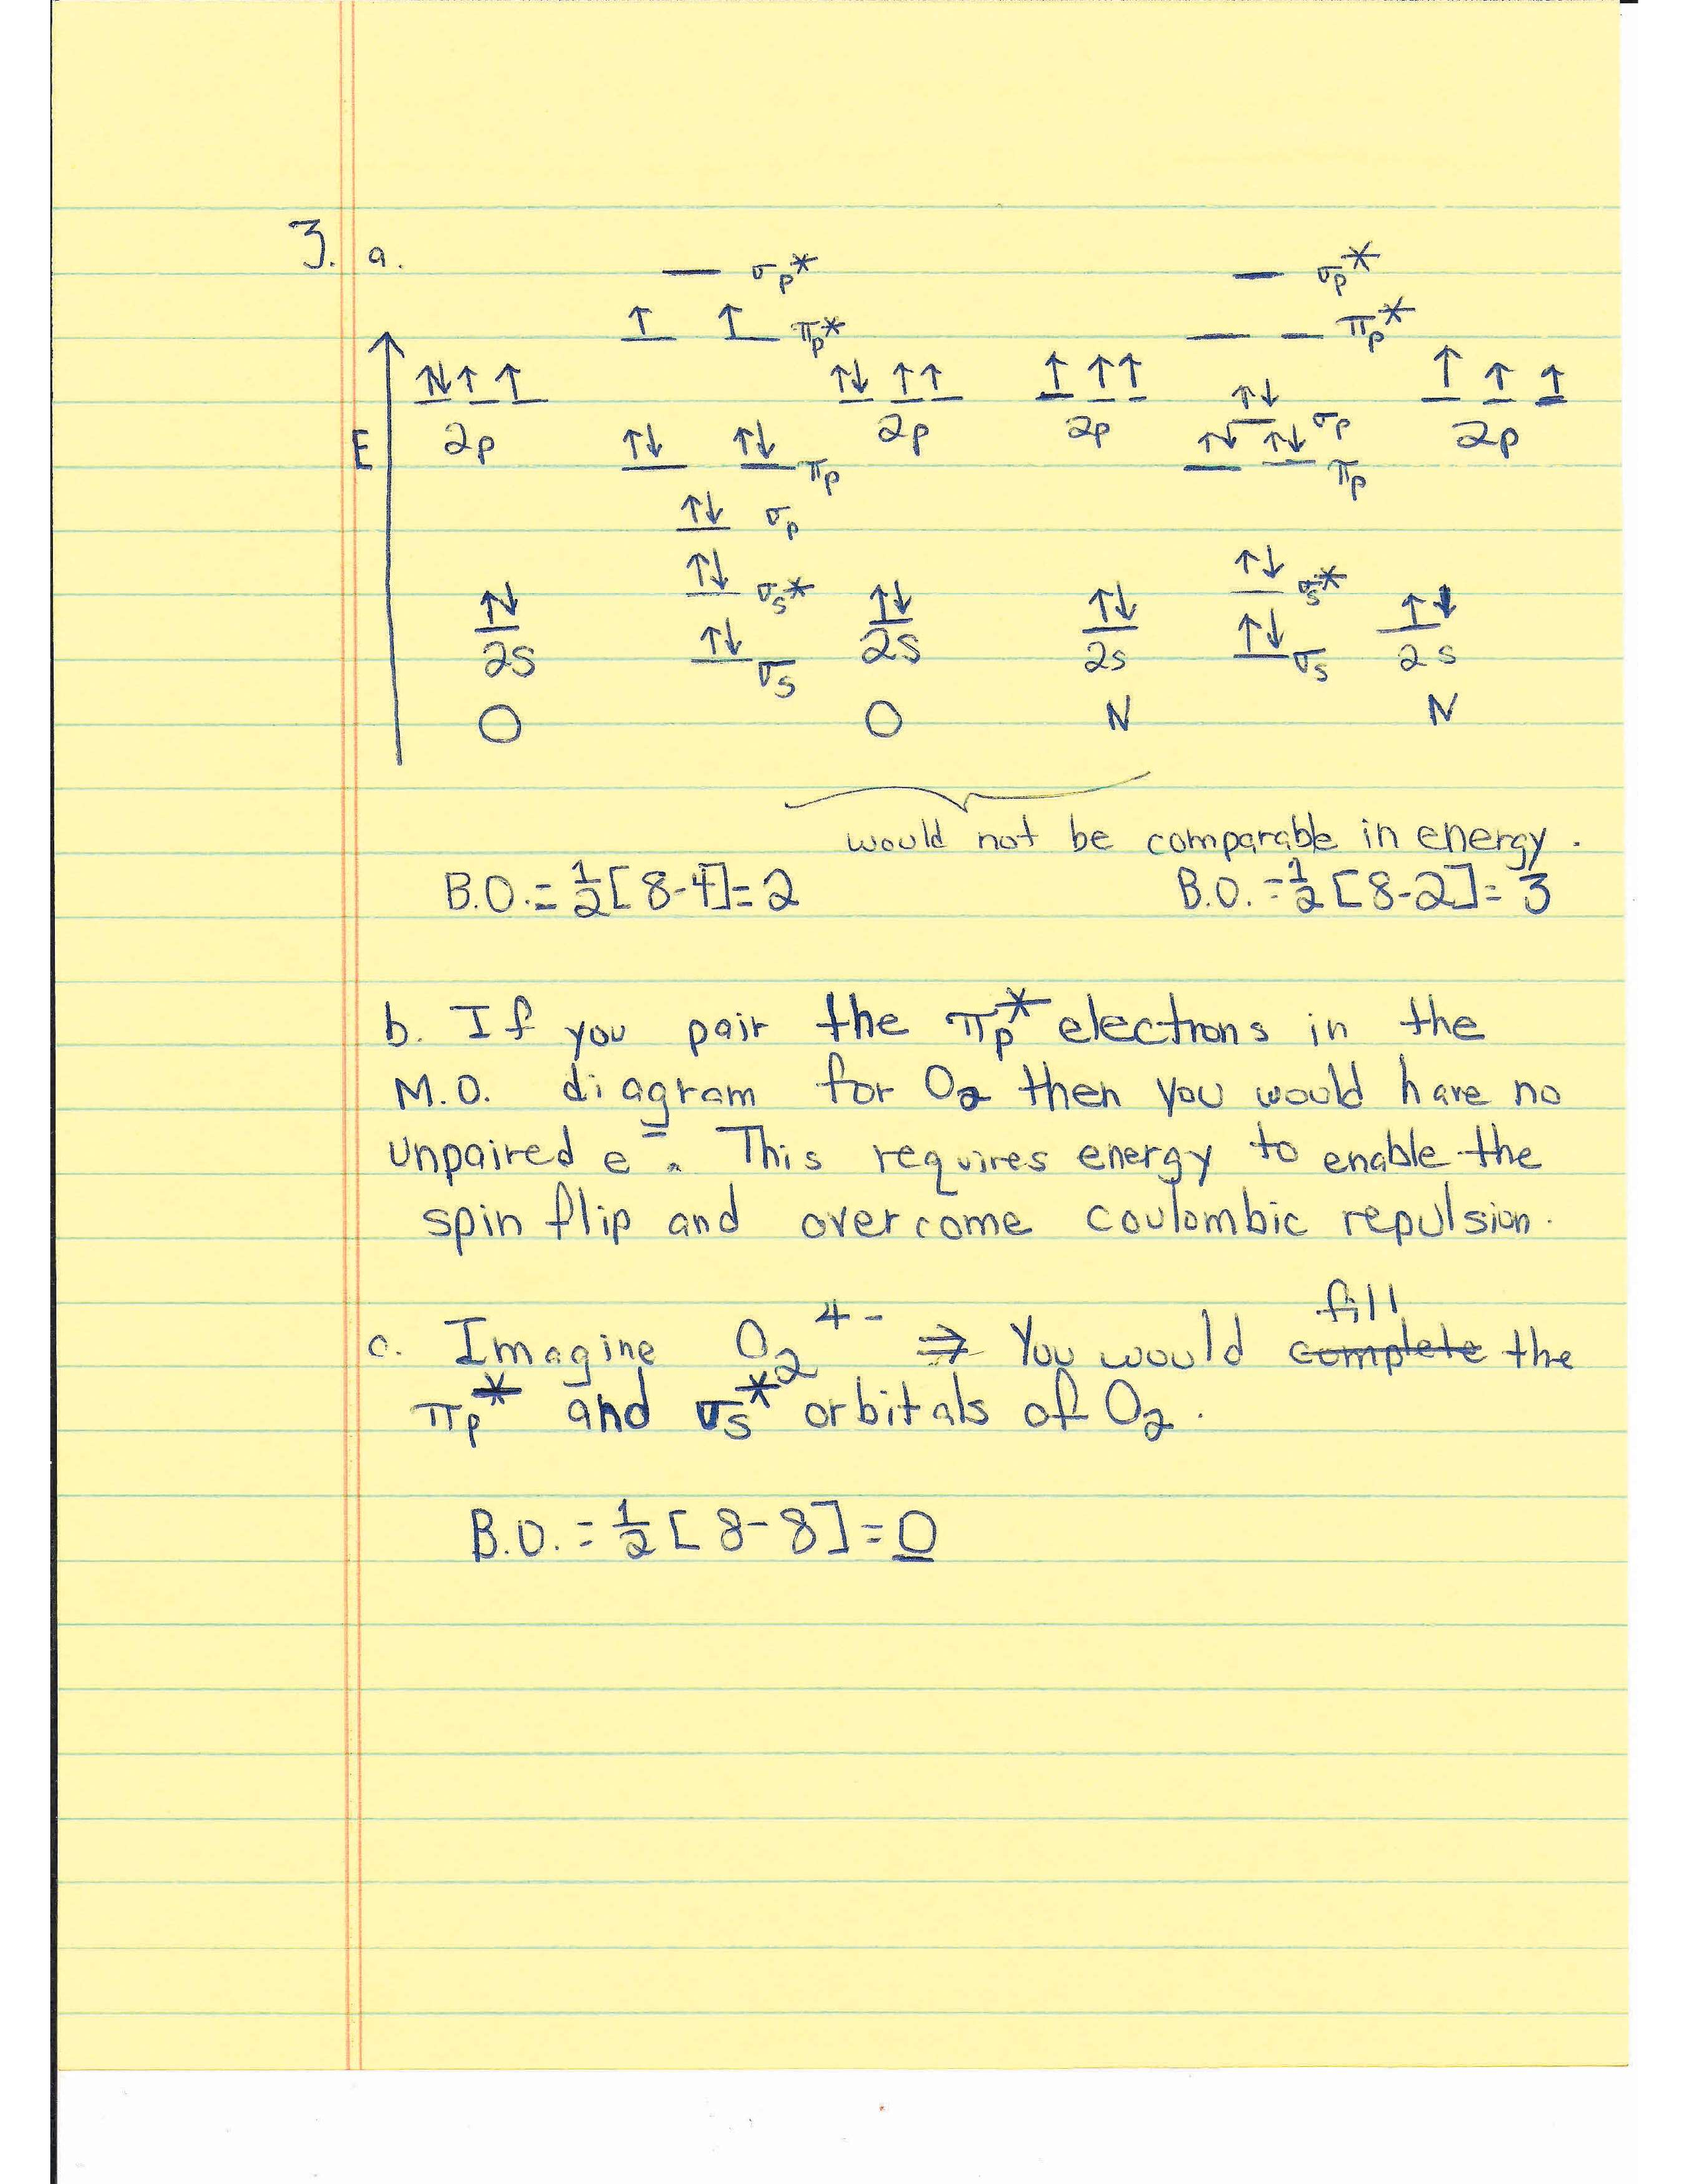 3. a.
— σp* — σp*
↑ ↑ πp* — — πp*
↑↓ ↑ ↑ ↑↓ ↑ ↑ ↑ ↑ ↑ ↑↓ ↑ ↑ ↑
E 2p ↑↓ ↑↓ πp 2p 2p σp ↑↓ ↑↓ πp 2p
↑↓ σp
↑↓ σs* ↑↓ σs*
↑↓ ↑↓ ↑↓ ↑↓
2s ↑↓ σs 2s 2s ↑↓ σs 2s
O O N N
would not be comparable in energy.
B.O. = 1/2 [8-4] = 2 B.O. = 1/2 [8-2] = 3
b. If you pair the πp* electrons in the
M.O. diagram for O2 then you would have no
unpaired e⁻. This requires energy to enable the
spin flip and overcome coulombic repulsion.
c. Imagine O2 4- ⇒ You would complete fill the
πp* and σs* orbitals of O2.
B.O. = 1/2 [8-8] = 0